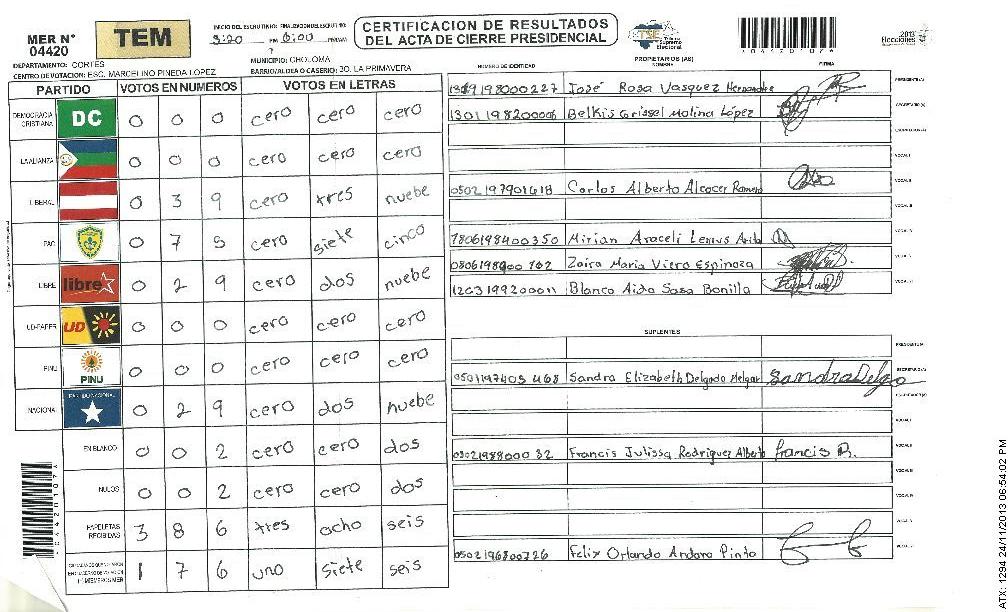 MER N° 04420
TEM
INICIO DEL ESCRUTINIO: FINALIZACION DEL ESCRUTINIO:
3:20 PM 6:00 PM/AM
CERTIFICACION DE RESULTADOS
DEL ACTA DE CIERRE PRESIDENCIAL
TSE Tribunal Supremo Electoral
2013 Elecciones
DEPARTAMENTO: CORTES
MUNICIPIO: CHOLOMA
CENTRO DE VOTACION: ESC. MARCELINO PINEDA LOPEZ
BARRIO/ALDEA O CASERIO: 3O. LA PRIMAVERA
PARTIDO VOTOS EN NUMEROS VOTOS EN LETRAS
DEMOCRACIA CRISTIANA DC 0 0 0 cero cero cero
LA ALIANZA 0 0 0 cero cero cero
LIBERAL 0 3 9 cero tres nuebe
PAC 0 7 5 cero siete cinco
LIBRE libre 0 2 9 cero dos nuebe
UD-FAPER UD 0 0 0 cero cero cero
PINU PINU 0 0 0 cero cero cero
NACIONAL PARTIDO NACIONAL 0 2 9 cero dos nuebe
EN BLANCO 0 0 2 cero cero dos
NULOS 0 0 2 cero cero dos
PAPELETAS RECIBIDAS 3 8 6 tres ocho seis
1 7 6 uno siete seis
NUMERO DE IDENTIDAD PROPIETARIOS (AS) NOMBRE FIRMA
José Rosa Vasquez Hernandez PRESIDENTE(A)
1301198200006 Belkis Grissel Molina López SECRETARIO(A)
ESCRUTADOR(A)
VOCAL I
0502197901618 Carlos Alberto Alcocer Romero VOCAL II
VOCAL III
Mirian Araceli Lemus VOCAL IV
Zoira Maria Viera Espinoza VOCAL V
Blanca Aida Sosa Bonilla VOCAL VI
SUPLENTES
PRESIDENTE(A)
Sandra Elizabeth Delgado Melgar Sandra Delgo SECRETARIO(A)
ESCRUTADOR(A)
VOCAL I
Francis Julissa Rodriguez Alberto francis R. VOCAL II
VOCAL III
VOCAL IV
VOCAL V
0502196800726 Felix Orlando Andara Pinto
ATX: 1294 24/11/2013 06:54:02 PM